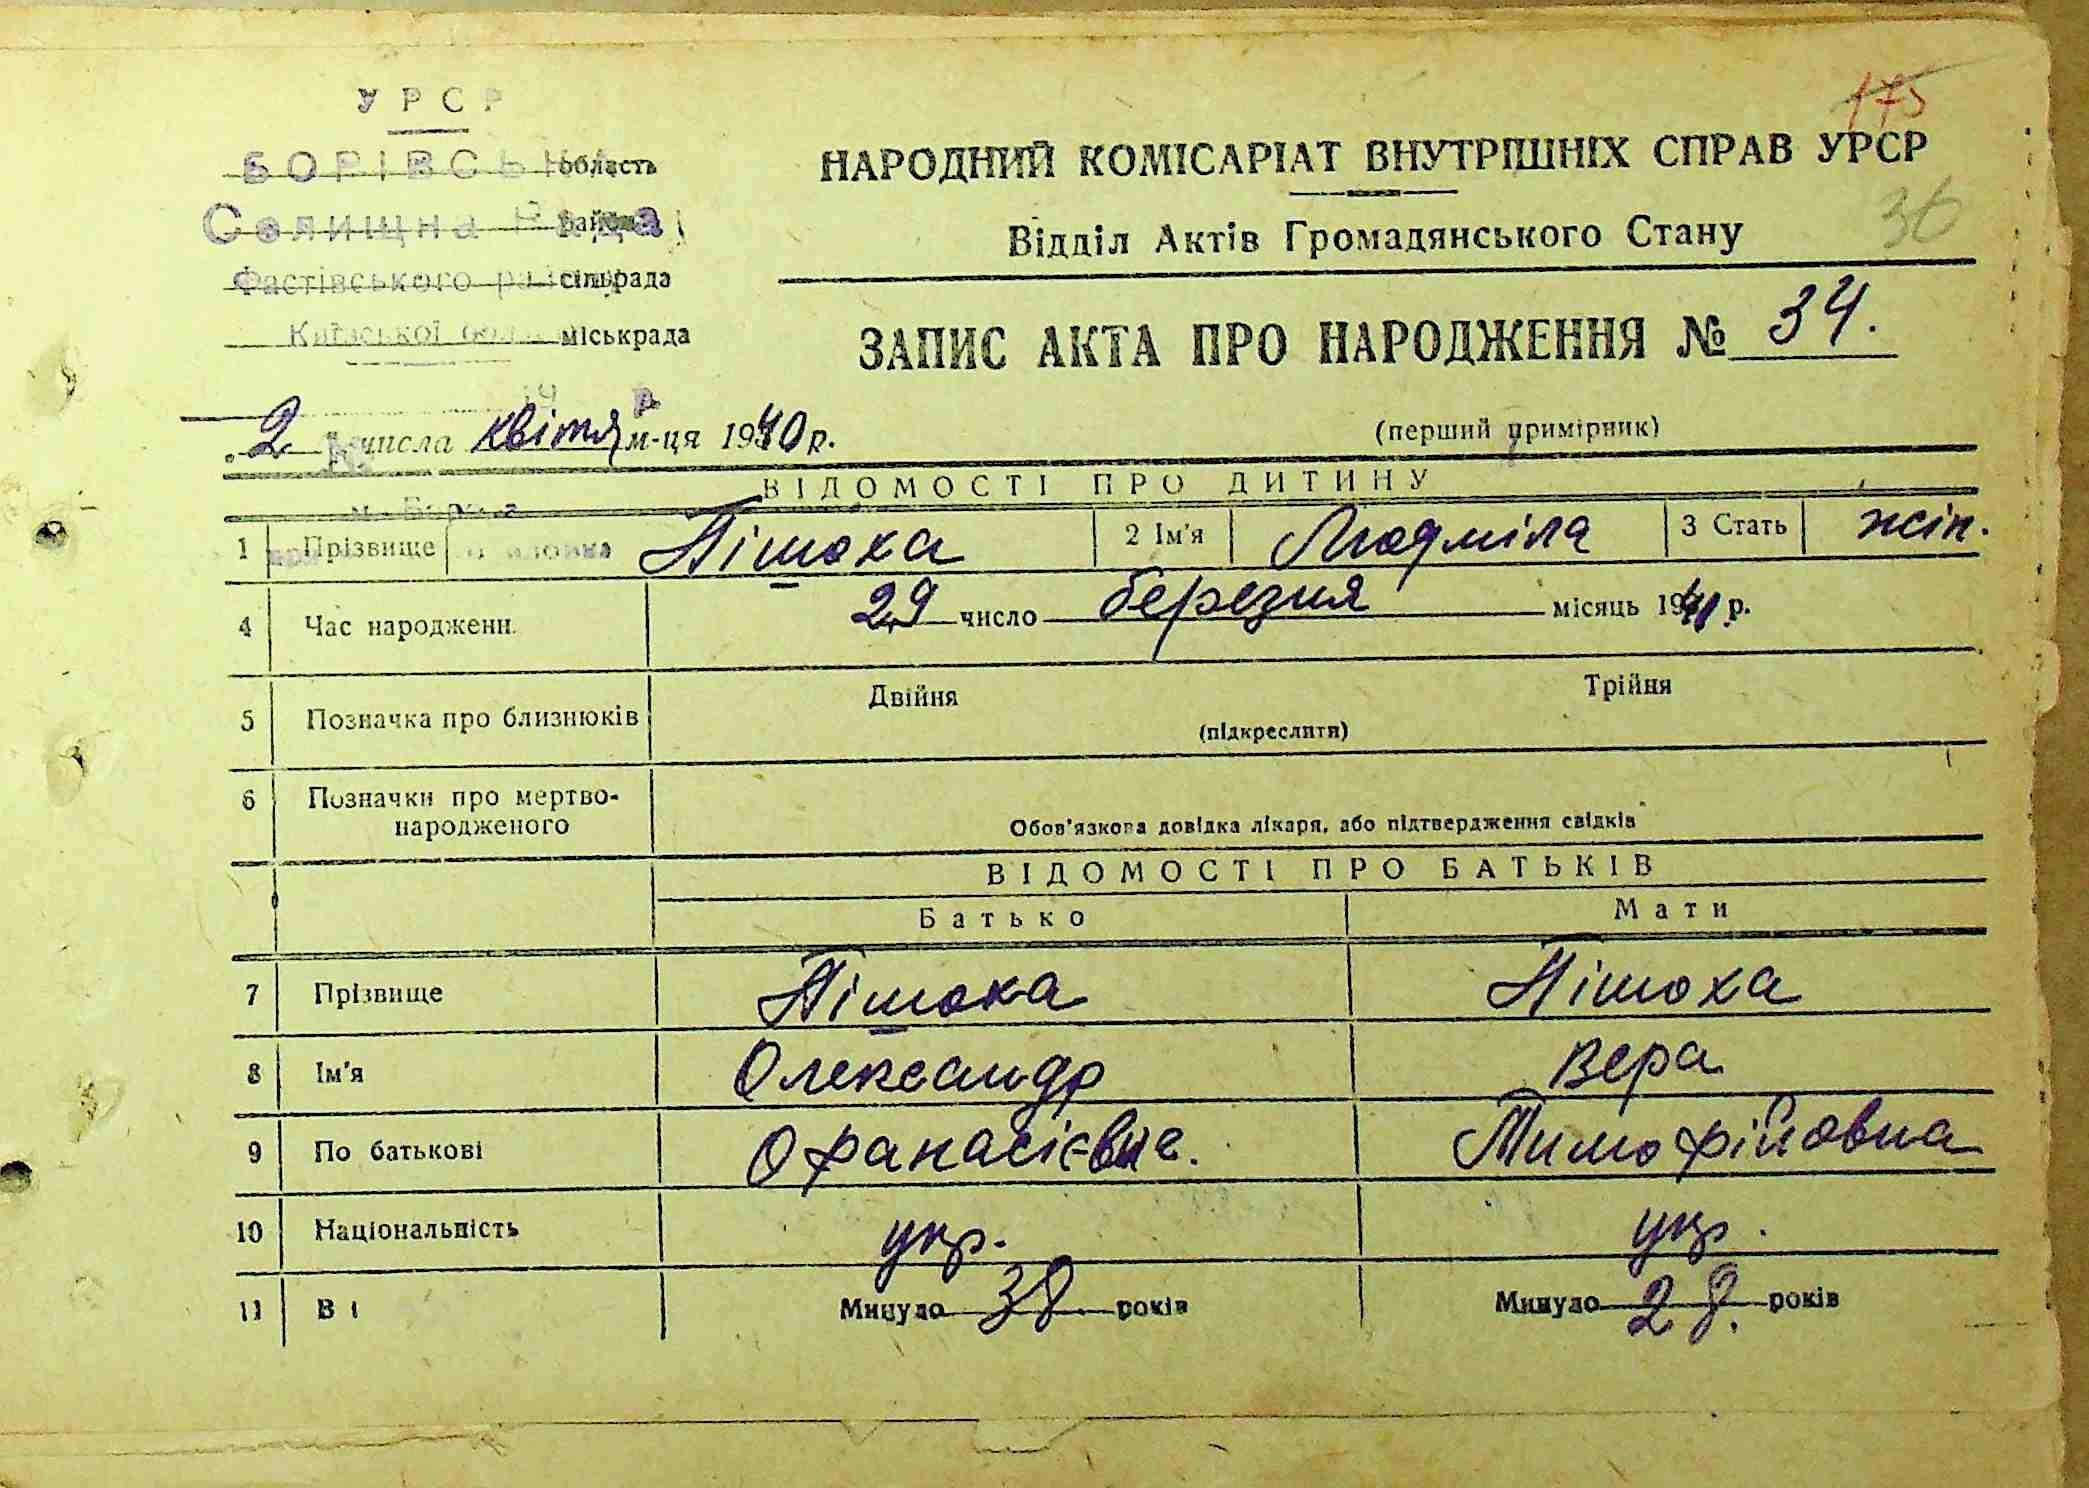 175
УРСР
БОРІВСЬКА область
Селищна Рада район
Фастівського району сільрада
Київської обл. міськрада
НАРОДНИЙ КОМІСАРІАТ ВНУТРІШНІХ СПРАВ УРСР
36
Відділ Актів Громадянського Стану
ЗАПИС АКТА ПРО НАРОДЖЕННЯ № 34.
2 числа квітня м-ця 1940 р.
(перший примірник)
ВІДОМОСТІ ПРО ДИТИНУ
1 Прізвище Пішоха 2 Ім'я Людміла 3 Стать жін.
4 Час народженн. 29 число березня місяць 19 р.
5 Позначка про близнюків Двійня Трійня
(підкреслити)
6 Позначки про мертво-
народженого
Обов'язкова довідка лікаря, або підтвердження свідків
ВІДОМОСТІ ПРО БАТЬКІВ
Батько Мати
7 Прізвище Пішоха Пішоха
8 Ім'я Олександр Вера
9 По батькові Офанасієвис. Тимофійовна
10 Національність укр. укр.
11 В і Минуло 38 років Минуло 28. років